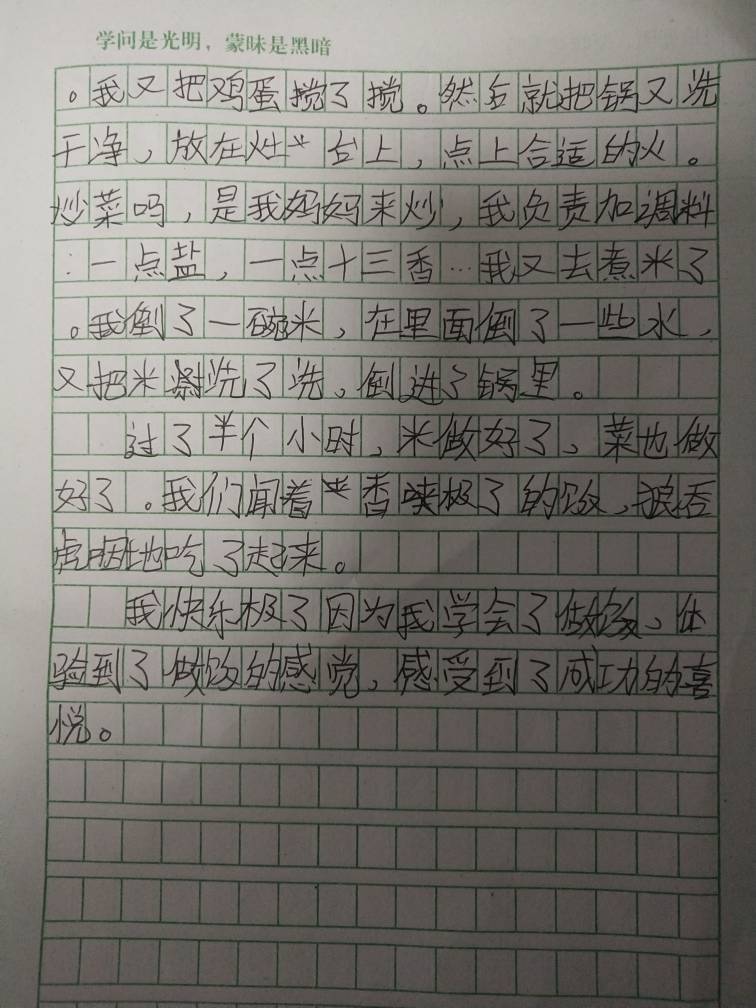 学问是光明，蒙昧是黑暗
。我又把鸡蛋搅了搅。然后就把锅又洗
干净，放在灶台上，点上合适的火。
炒菜吗，是我妈妈来炒，我负责加调料
：一点盐，一点十三香…我又去煮米了
。我倒了一碗米，在里面倒了一些水，
又把米洗了洗、倒进了锅里。
过了半个小时，米做好了、菜也做
好了。我们闻着香极了的饭、狼吞
虎咽地吃了起来。
我快乐极了因为我学会了做饭、体
验到了做饭的感觉，感受到了成功的喜
悦。